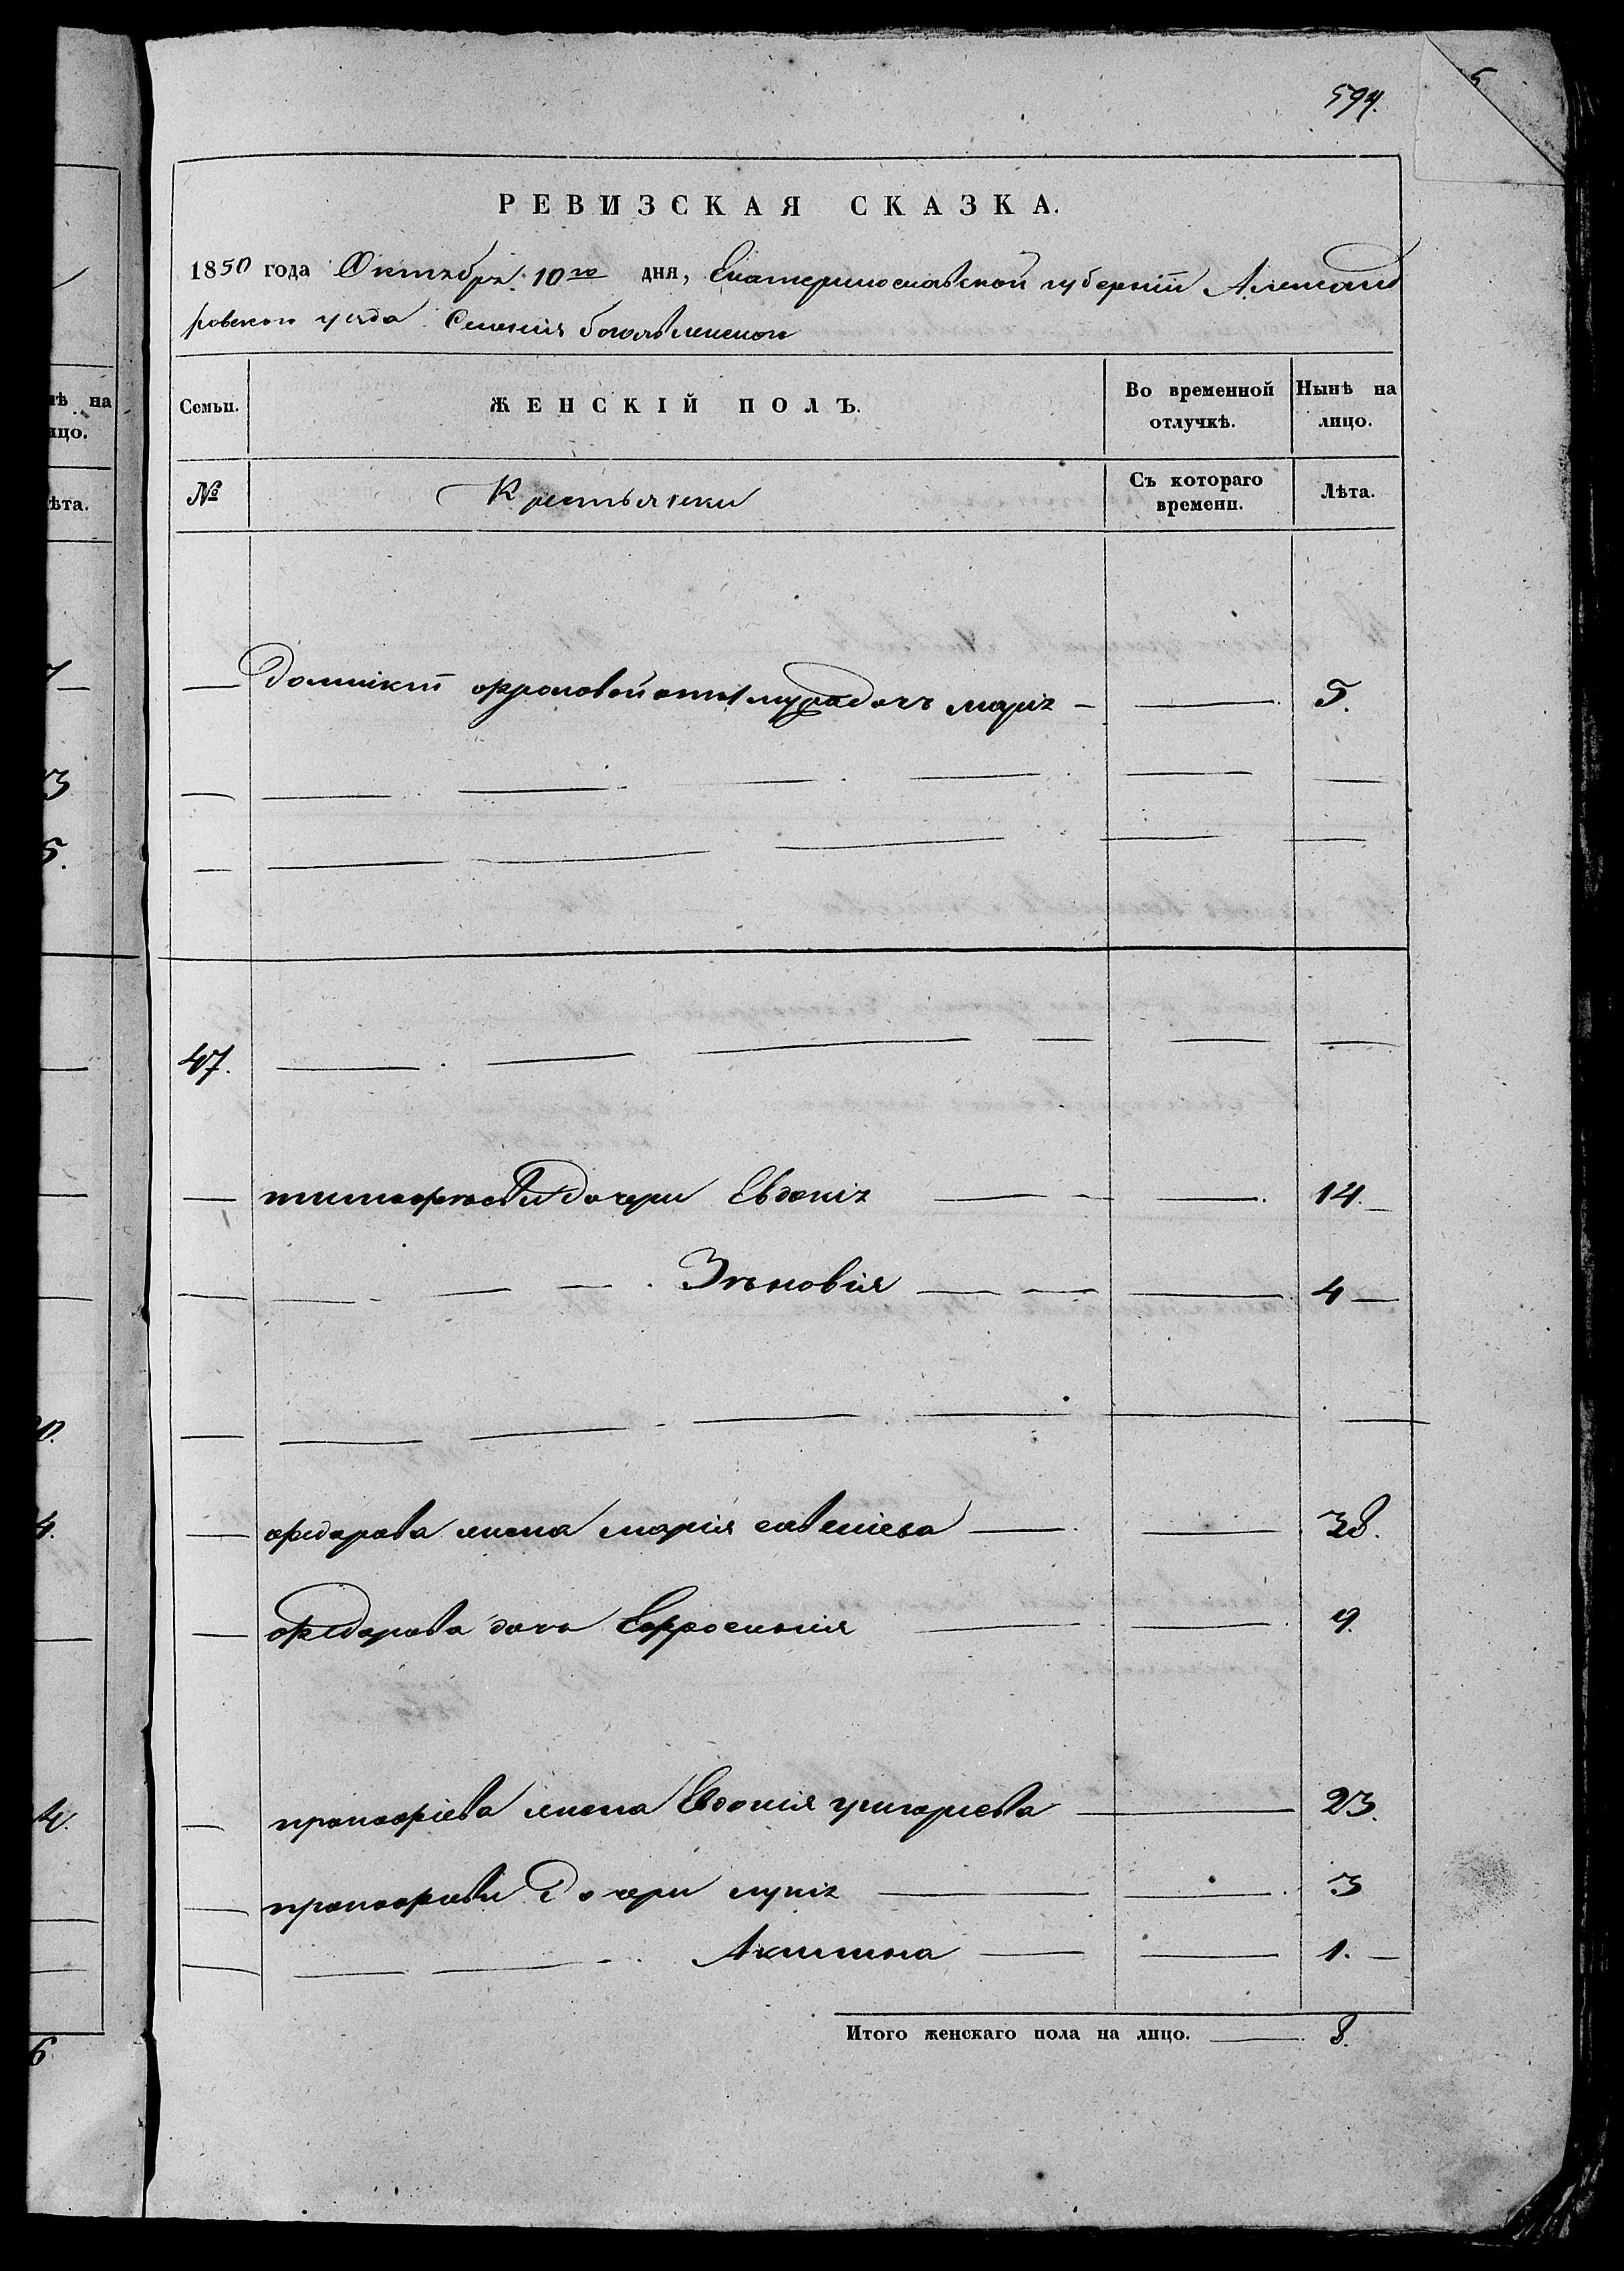 594.
5
РЕВИЗСКАЯ СКАЗКА.
1850 года Октября 10го дня, Екатеринославской губернiи Александ
ровского уезда Селения боголяленского
Семьи.
ЖЕНСКІЙ ПОЛЪ.
Во временной отлучкѣ.
Нынѣ на лицо.
№
Крестьянки
Съ котораго времени.
Лѣта.
фроловой дочь марія — 5.
47.
тимофѣевы дочери Евдокія — 14.
Зѣновія — 4
федорова жена марія савеліева — 38.
федорова дочь Ефросинія — 9.
прокофіева жена Евдокія григорієва — 23.
прокофіевы дочери лукія — 3
Акилина — 1.
Итого женскаго пола на лицо. — 8.
нѣ на
ицо.
ѣта.
7
3
5.
0.
4.
4.
6